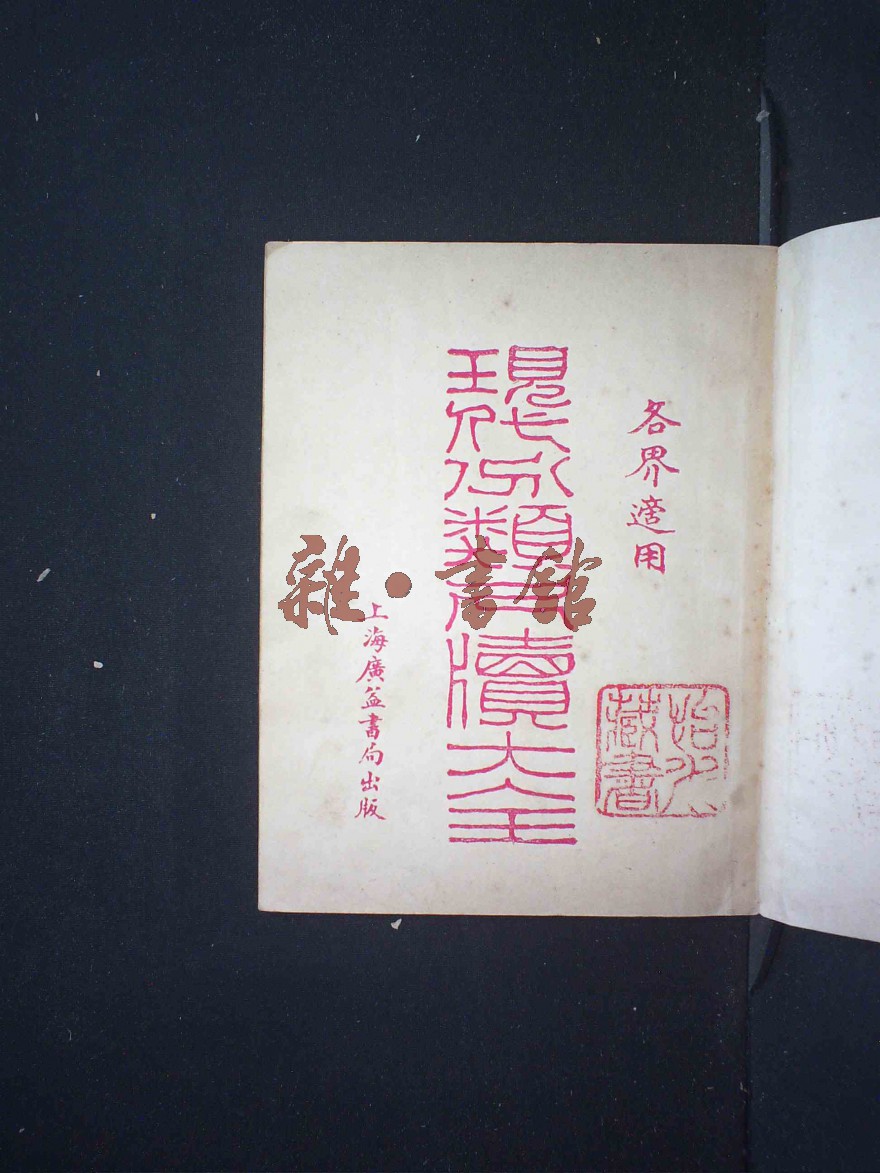 各界適用
現代分類尺牘大全
上海廣益書局出版
藏書
雜·書館